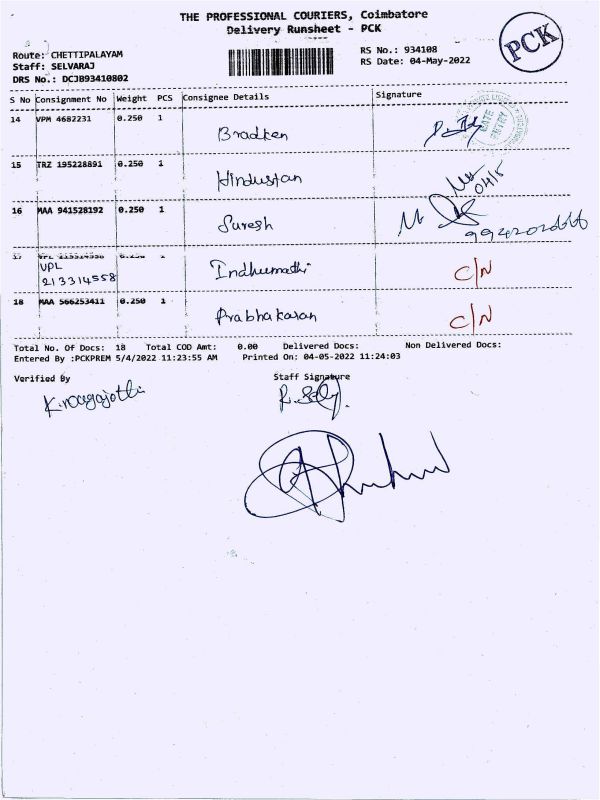 THE PROFESSIONAL COURIERS, Coimbatore
Delivery Runsheet - PCK
PCK
Route: CHETTIPALAYAM
Staff: SELVARAJ
DRS No.: DCJB93410802
RS No.: 934108
RS Date: 04-May-2022
S No Consignment No Weight PCS Consignee Details Signature
14 VPM 4682231 0.250 1 Bradken
LATE ENTRY
15 TRZ 195228891 0.250 1 Hindustan
04/5
16 MAA 941528192 0.250 1 Suresh
17 VPL 213314558 0.250 1
VPL Indhumathi C/N
213314558
18 MAA 566253411 0.250 1 Prabhakaran C/N
Total No. Of Docs: 18 Total COD Amt: 0.00 Delivered Docs: Non Delivered Docs:
Entered By :PCKPREM 5/4/2022 11:23:55 AM Printed On: 04-05-2022 11:24:03
Verified By Staff Signature
K. Nagajothi